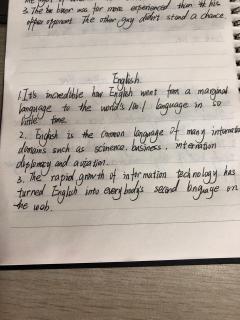 3. The boxer was far more experienced than his
opponent. The other guy didn't stand a chance.
English.
1. It's incredible how English went from a marginal
language to the world's No.1 language in so
little time.
2. English is the common language of many
domains such as science, business,
diplomacy and aviation.
3. The rapid growth of information technology has
turned English into everybody's second language on
the web.